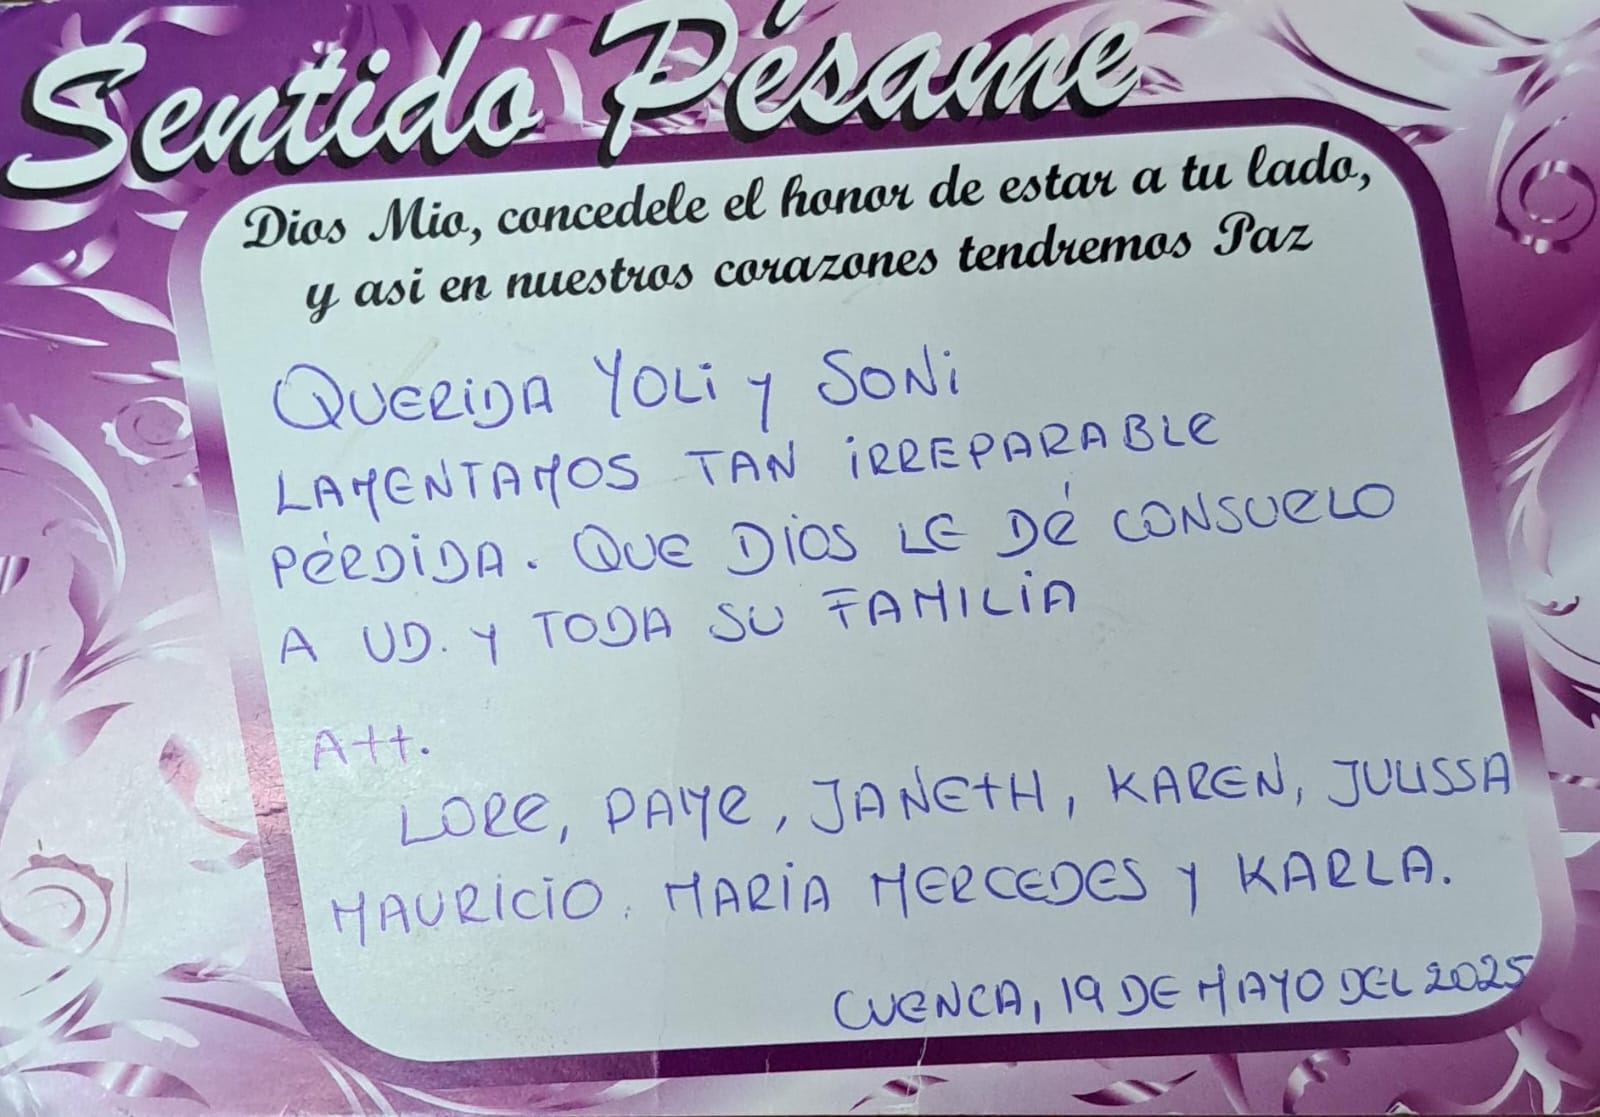 Sentido Pésame
Dios Mio, concedele el honor de estar a tu lado,
y asi en nuestros corazones tendremos Paz
QUERIDA YOLI Y SONI
LAMENTAMOS TAN IRREPARABLE
PÉRDIDA. QUE DIOS LE DÉ CONSUELO
A UD. Y TODA SU FAMILIA
Att.
LORE, PAME, JANETH, KAREN, JULISSA
MAURICIO. MARIA MERCEDES Y KARLA.
CUENCA, 19 DE MAYO DEL 2025